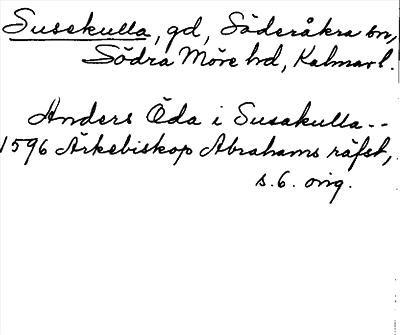 Susekulla, gd, Söderåkra sn,
Södra Möre hd, Kalmar l.
Anders Öda i Susakulla --
1596 Ärkebiskop Abrahams räfst,
s. 6. orig.